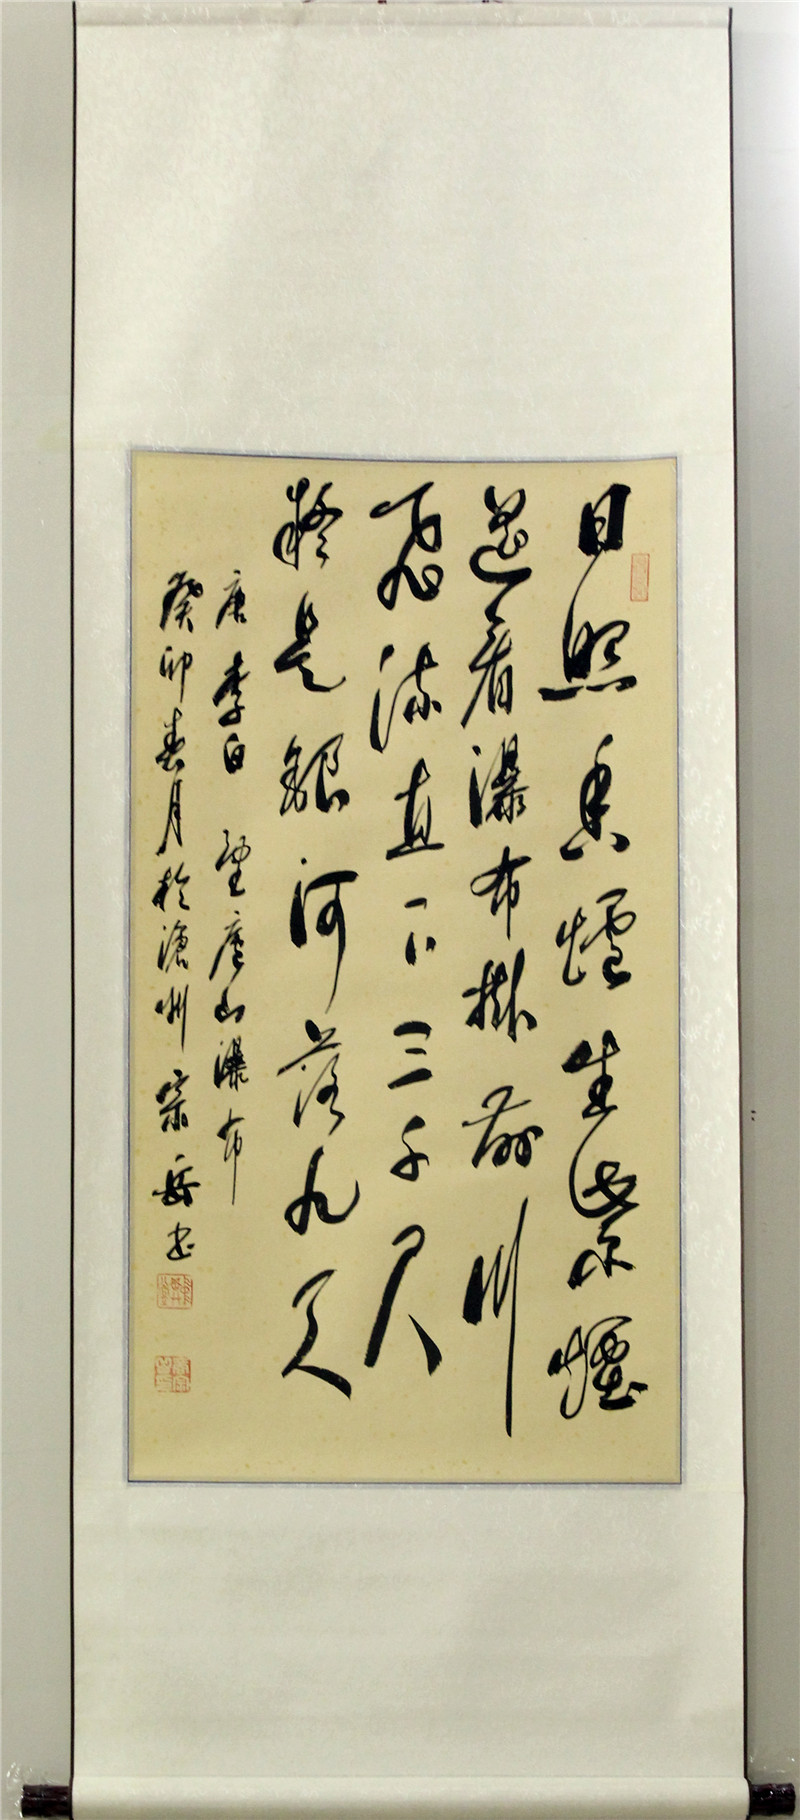 日照香爐生紫煙
遥看瀑布掛前川
飛流直下三千尺
疑是銀河落九天
唐 李白 望廬山瀑布
癸卯春月於滄州 宗岳书